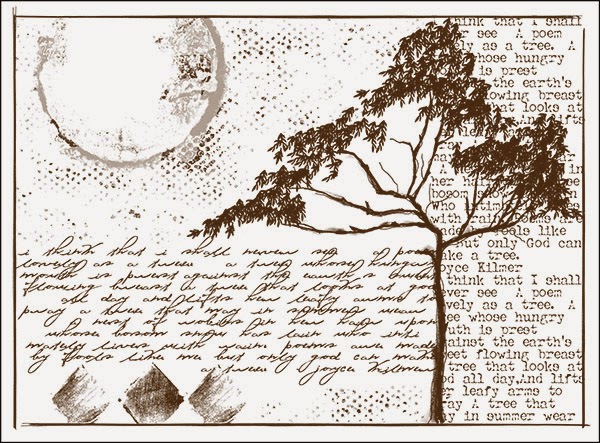 think that I shall
er see A poem
ely as a tree. A
whose hungry
is prest
the earth's
flowing breast
hat looks at
And lifts
her hair
bosom snow
Who intim
with rain
made fools like
but only God can
ke a tree.
oyce Kilmer
think that I shall
ever see A poem
vely as a tree. A
ee whose hungry
uth is prest
ainst the earth's
eet flowing breast
tree that looks at
od all day,And lifts
er leafy arms to
ray A tree that
ay in summer wear
i think that i shall never see a poem
lovely as a tree a tree whose hungry
mouth is prest against the earth's sweet
flowing breast a tree that looks at god
all day and lifts her leafy arms to
pray a tree that may in summer wear
a nest of robins in her hair upon
whose bosom snow has lain who inti
mately lives with rain poems are made
by fools like me but only god can make
a tree joyce kilmer